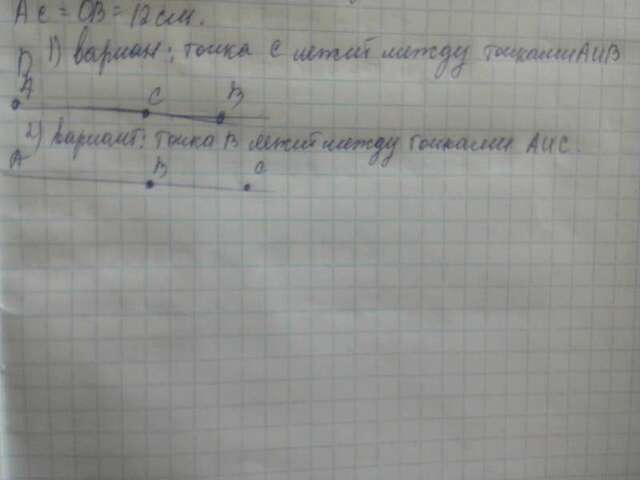 AC = OB = 12 см.
1) вариан: точка C лежит между точками A и B
A C B
2) вариант: точка B лежит между точками A и C.
A B C